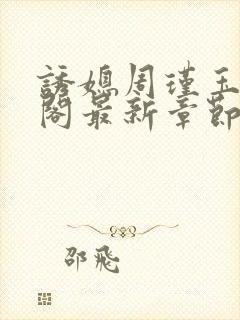 誘媳周瑾玉
閣最新章節
邵飛